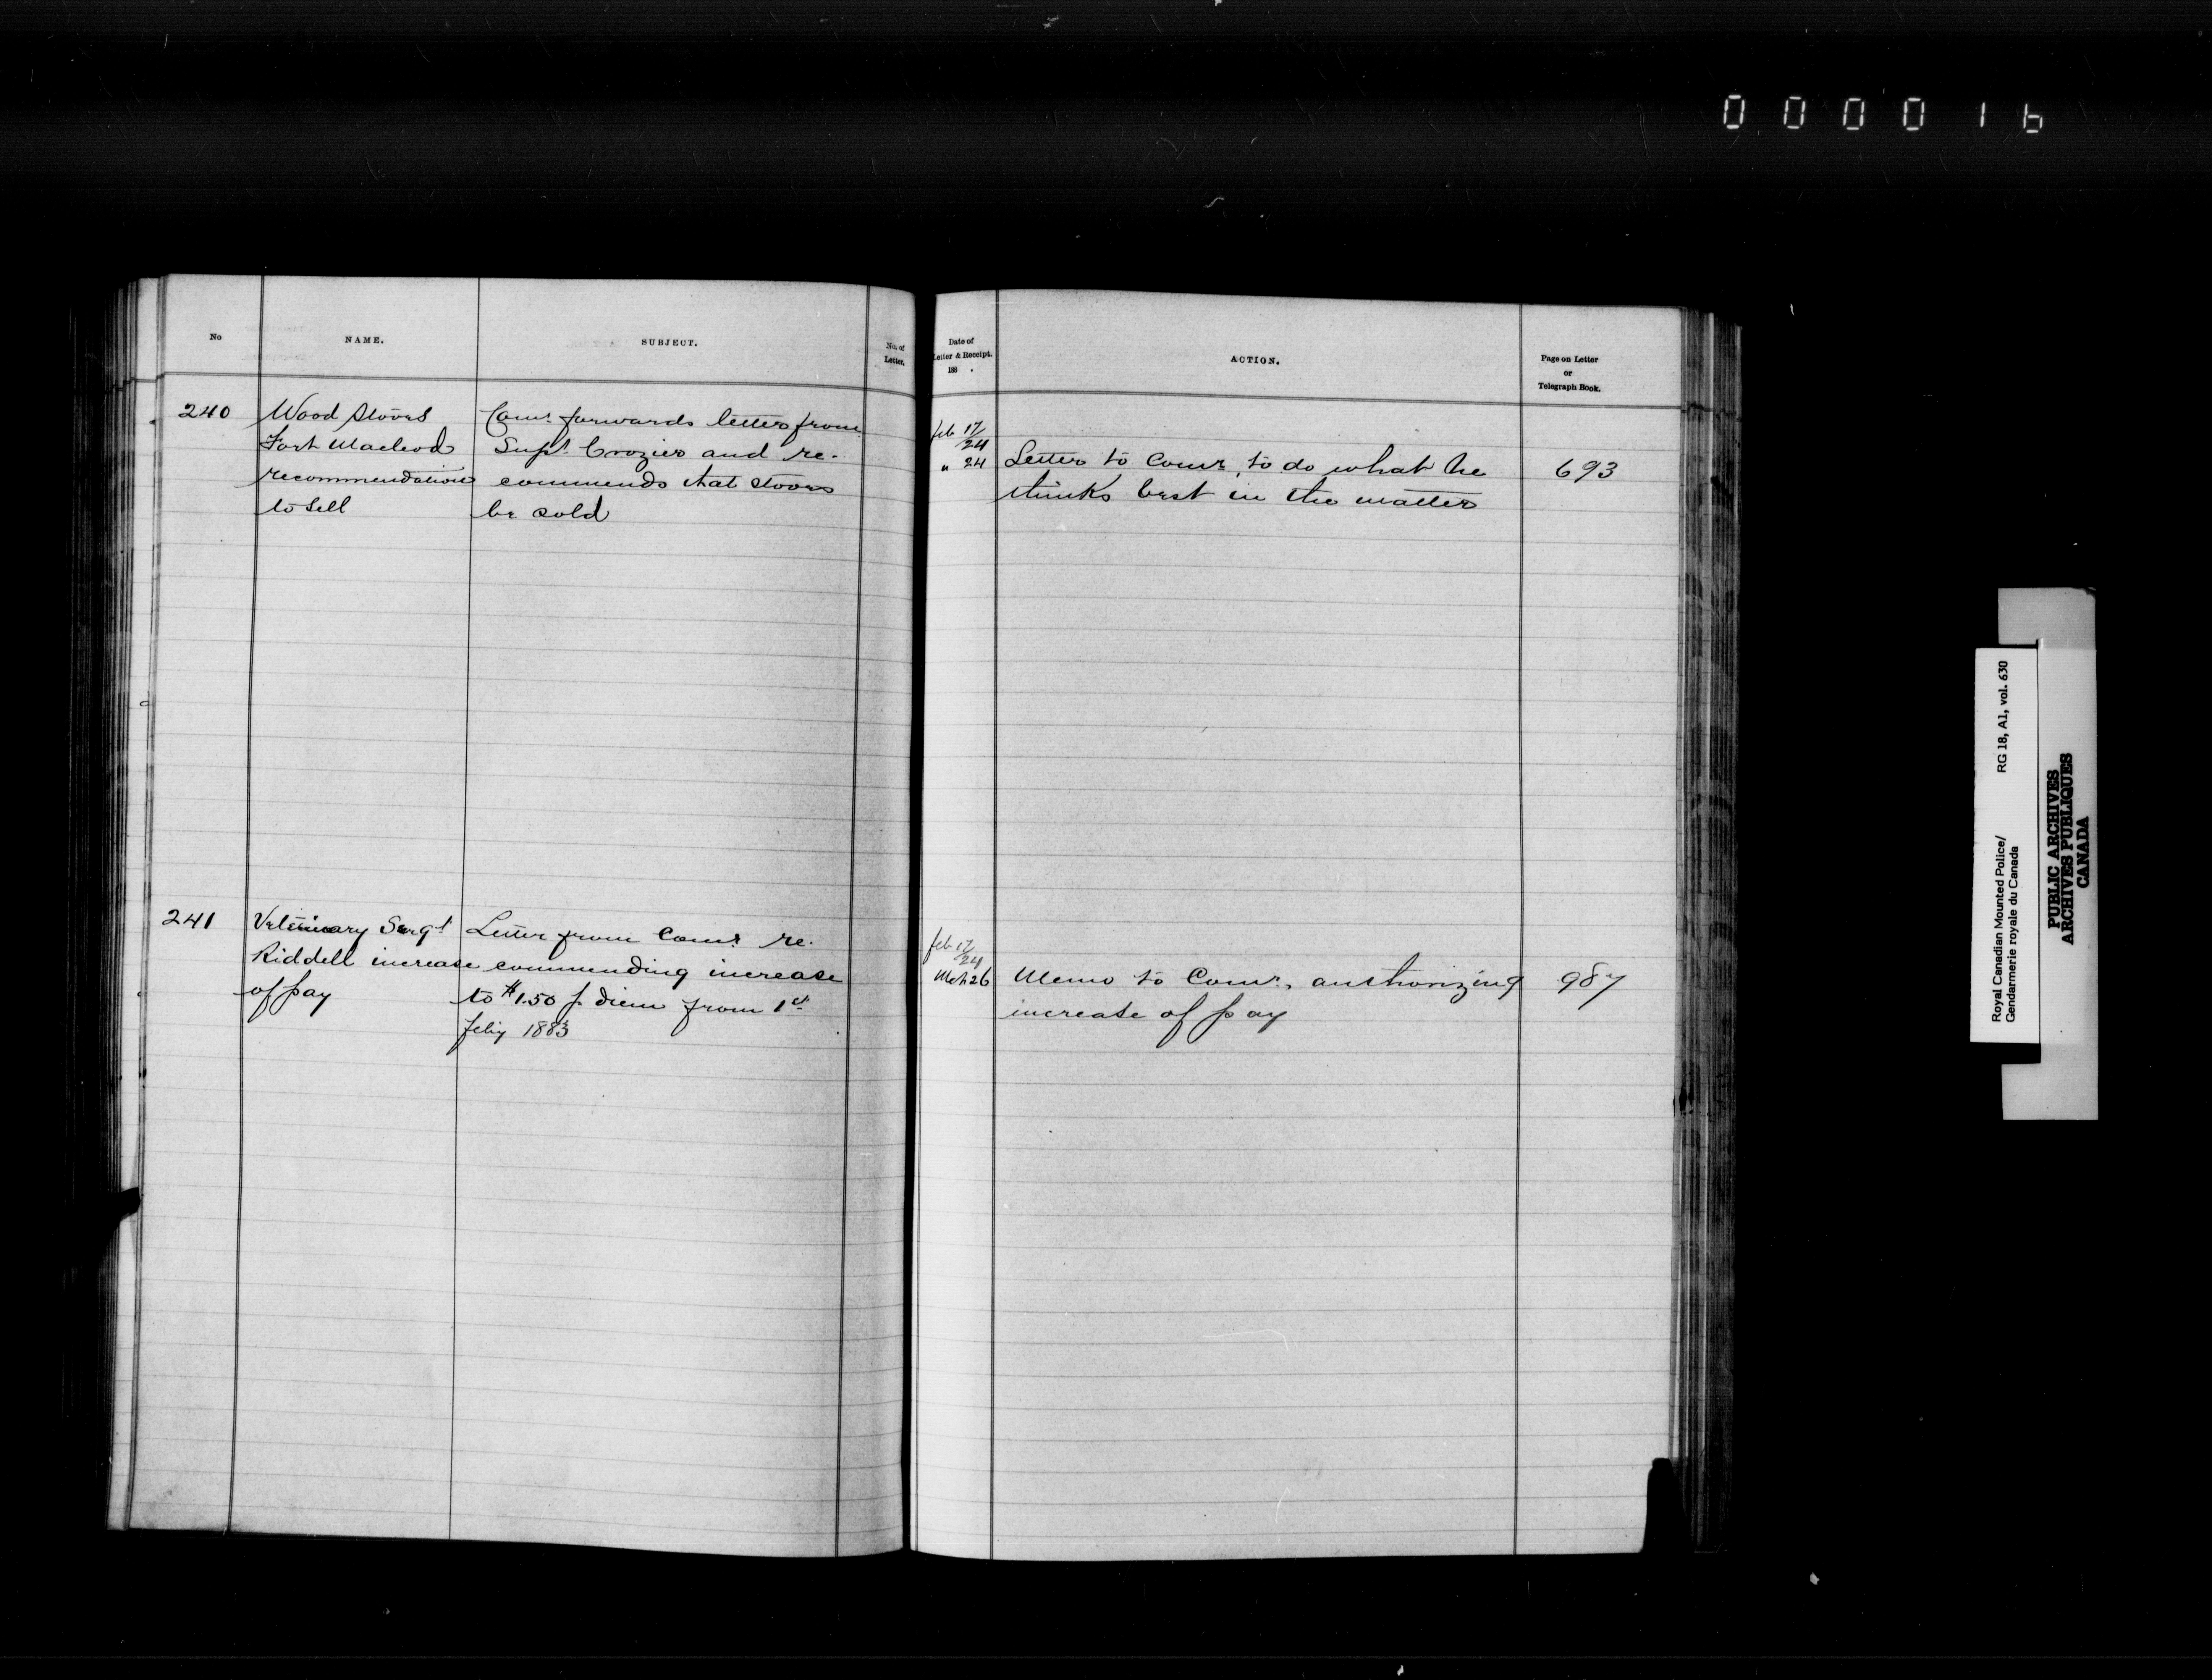 000016
No
NAME.
SUBJECT.
No. of
Letter.
Date of
Letter & Receipt.
188 .
ACTION.
Page on Letter
or
Telegraph Book.
240
Wood Stoves
Fort Macleod
recommendation
to sell
Comr forwards letter from
Supt Crozier and re-
commends that stoves
be sold
Feb 17/24
" 24
Letter to Comr, to do what he
thinks best in the matter
693
241
Veterinary Sergt
Riddell increase
of pay
Letter from Comr re-
commending increase
to $1.50 p diem from 1st
Feby 1883
Feb 17/24
Mch 26
Memo to Comr, authorizing
increase of pay
987
Royal Canadian Mounted Police/
Gendarmerie royale du Canada
RG 18, A1, vol. 630
PUBLIC ARCHIVES
ARCHIVES PUBLIQUES
CANADA